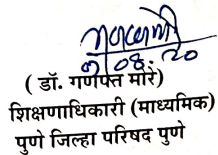 ०१/०८/२०
( डॉ. गणपत मोरे )
शिक्षणाधिकारी (माध्यमिक)
पुणे जिल्हा परिषद पुणे